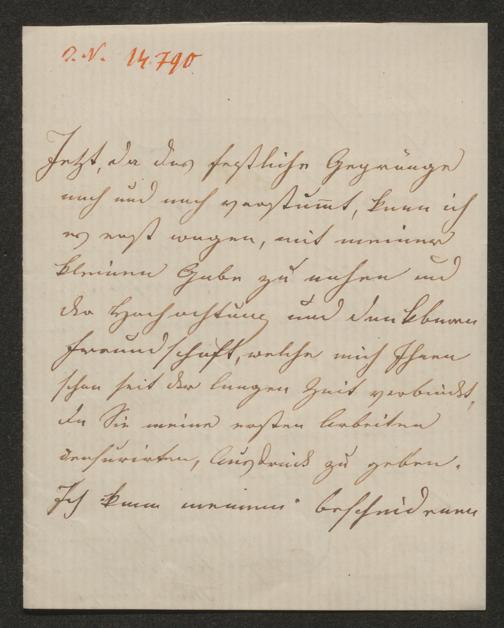 I. N. 14.790
Jetzt, da das festliche Gepränge
nach und nach verstum̅t, kann ich
es erst wagen, mit meiner
kleinen Gabe zu nahen und
der Hochachtung und dankbaren
Freundschaft, welche mich Ihnen
schon seit der langen Zeit verbindet,
da Sie meine ersten Arbeiten
censurirten, Ausdruck zu geben.
Ich kann meinem bescheidenen